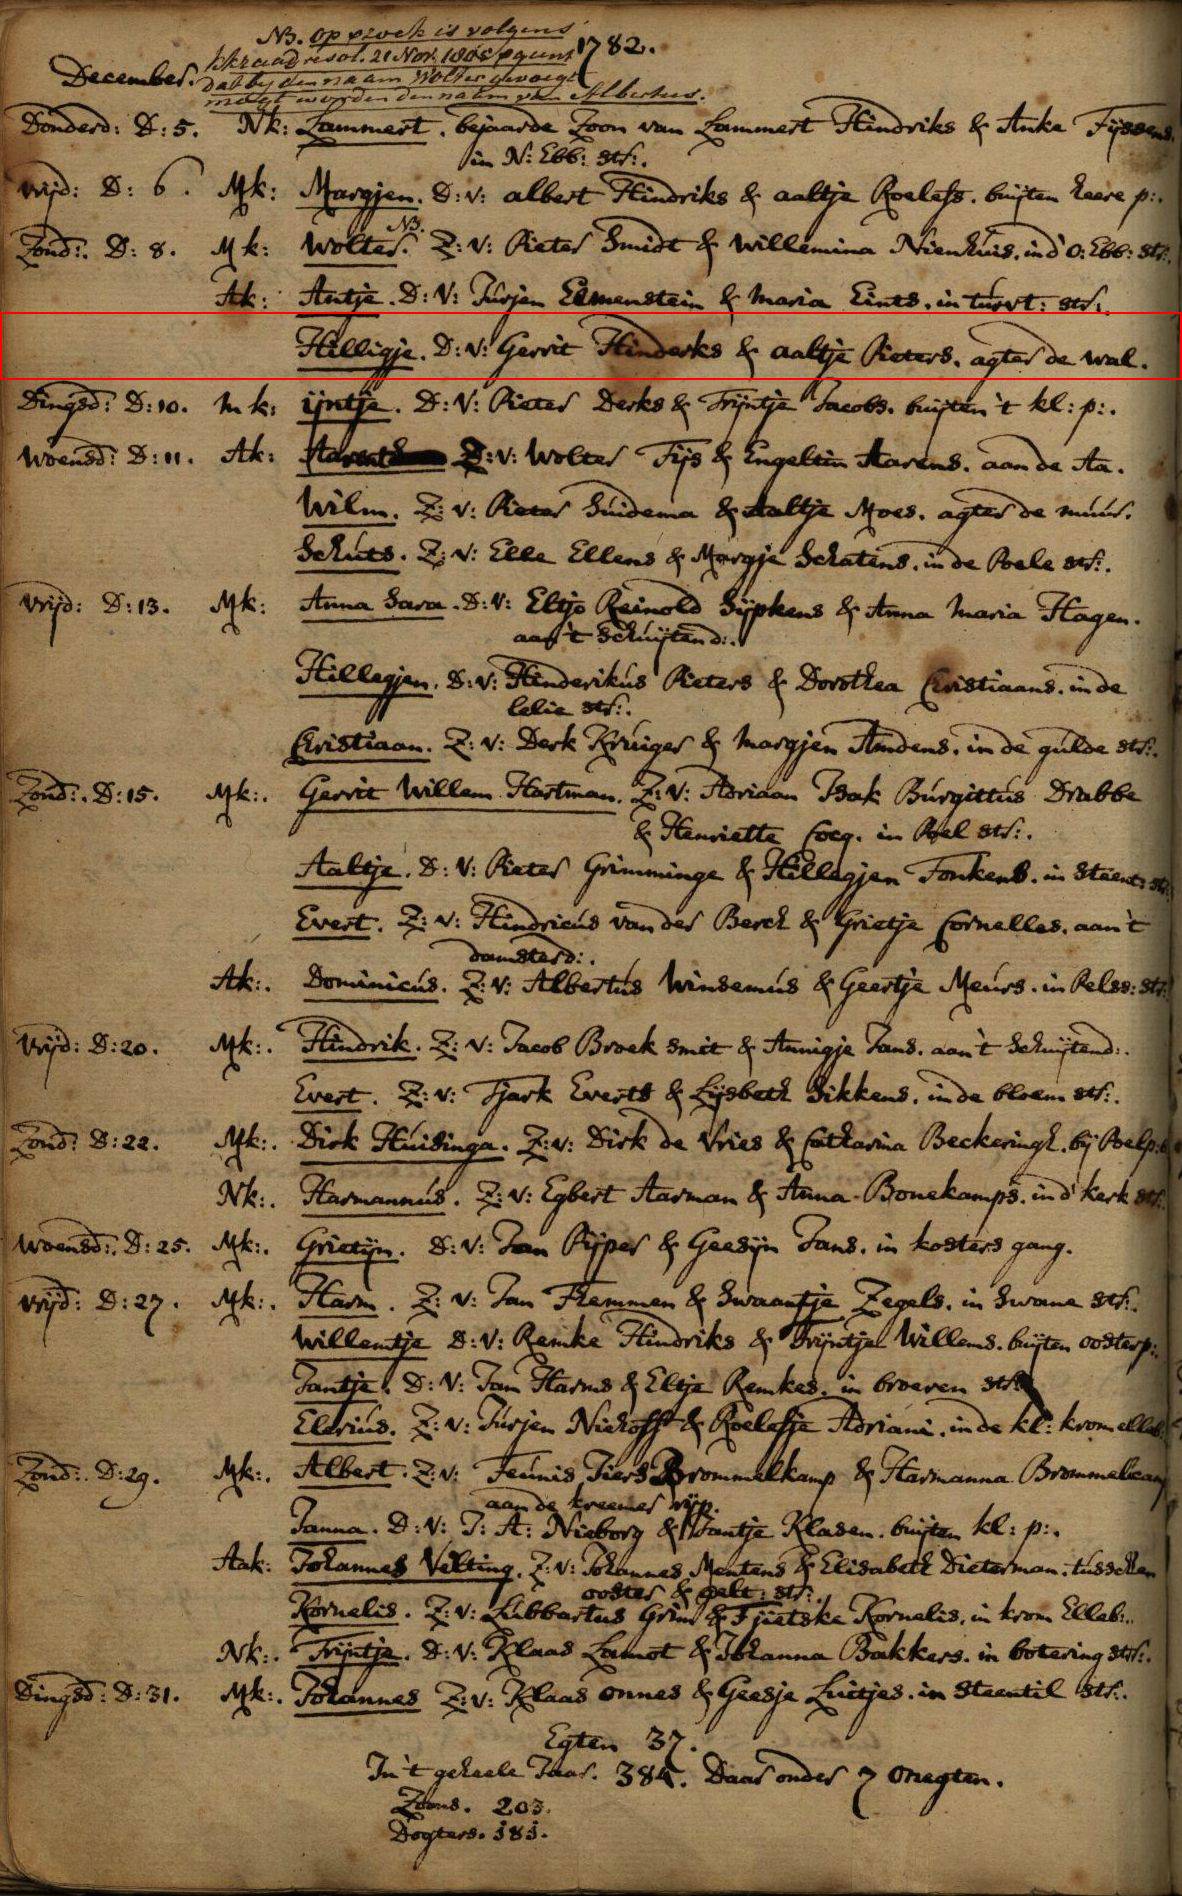 NB. op vzoek is volgens
1782.
kkraad resol. 21 Nov. 1808 pgunt
December.
dat bij den naam Wolter gevoegt
mogt worden den naam van Albertus.
Donderd: D: 5. Nk: Lammert. bejaarde Zoon van Lammert Hindriks & Anke Fijssens.
in N: Ebb: str:.
Vrijd: D: 6. Mk: Margjen. D: v: albert Hindriks & aaltje Roelefs. buijten heere p:.
NB.
Zond:. D: 8. Mk: Wolter. Z: v: Pieter Smidt & Willemina Nienhuis. in d'O: Ebb: str:.
Ak: Antje. D: V: Jurjen Eemenstein & Maria Eints. in turvt: str:.
Hilligje. D: v: Gerrit Hinderks & aaltje Pieters. agter de wal.
Dingsd: D: 10. Mk: ijntje. D: V: Pieter Derks & Trijntje Jacobs. buijten 't kl: p:.
Woensd: D: 11. Ak: Z: v: Wolter Fijs & Engeltin Aarens. aan de Aa.
Wilm. Z: v: Pieter Suidema & Aaltje Moes. agter de muur.
Schuts. Z: v: Elle Ellens & Margje Schatens. in de Poele str:.
Vrijd: D: 13. Mk: Anna Sara. D: v: Eltjo Reinold Sijpkens & Anna Maria Hagen.
aan 't Schuijtend:.
Hillegjen. D: v: Hinderikus Pieters & Dorothea Christiaans. in de
lelie str:.
Christiaan. Z: v: Derk Kruiger & Margjen Amdens. in de gulde str:.
Zond:. D: 15. Mk:. Gerrit Willem Hartman. Z: V: Adriaan Isak Burgittus Drabbe
& Henriette Cocq. in Poel str:.
Aaltje. D: v: Pieter Grimminge & Hillegjen Fonkens. in steent: str:
Evert. Z: v: Hindricus van der Berch & Grietje Cornelles. aan 't
damsterd:.
Ak:. Dominicus. Z: v: Albertus Winsemus & Geertje Meurs. in Pelss: str:
Vrijd: D: 20. Mk:. Hindrik. Z: v: Jacob Broek smit & Annigje Jans. aan 't Schuijtend:.
Evert. Z: v: Tjark Everts & Lijsbeth Sikkens. in de bloem str:.
Zond: D: 22. Mk:. Dirk Huisinga. Z: v: Dirk de Vries & Catharina Beckeringh. bij Poelp:
Nk:. Harmannus. Z: v: Egbert Harman & Anna Bonekamps. in d' kerk str:.
Woensd:. D: 25. Mk:. Grietijn. D: v: Jan Pijper & Geesijn Jans. in kosters gang.
Vrijd: D: 27. Mk:. Harm. Z: v: Jan Flemmen & Swaantje Zegels. in Swane str:.
Willemtje D: V: Remke Hindriks & Trijntje Willems. buijten oosterp:.
Jantje. D: V: Jan Harms & Eltje Remkes. in broeren str:
Elerius. Z: v: Jurjen Niehoff & Roelefje Adriani. in de kl: krom elleb:
Zond:. D: 29. Mk:. Albert. Z: v: Teunis Tiers Brommelkamp & Harmanna Brommelkamp
aan de kreemer rijp.
Janna. D: V: J: A: Nieborg & Jantje Klasen. buijten kl: p:.
Aak: Johannes Velting. Z: v: Johannes Mentens & Elisabeth Dieterman. tusschen
ooster & pelt: str:.
Kornelis. Z: v: Lubbartus Grim & Tjietske Kornelis. in krom Elleb:.
Nk:. Trijntje. D: v: Klaas Lamot & Johanna Bakkers. in botering str:.
Dingsd: D: 31. Mk:. Johannes Z: v: Klaas onnes & Geesje Luitjes. in Steentil str:.
Egten 37.
In 't geheele Jaar. 384. Daar onder 7 onegten.
Zoons. 203.
Dogters. 181.